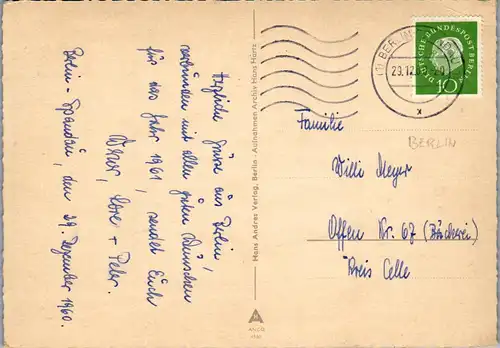 Berlin-Spandau, den 29. Dezember 1960.
Herzliche Grüsse aus Berlin,
verbunden mit allen guten Wünschen
für das Jahr 1961, sendet Euch
Lore + Peter.
Hans Andres Verlag, Berlin · Aufnahmen Archiv Hans Hartz
ANCO
DEUTSCHE BUNDESPOST BERLIN
10
(1) BERLIN
29.12.60
x
BERLIN
Familie
Willi Meyer
Offen Nr. 67 (Bäckerei)
Kreis Celle